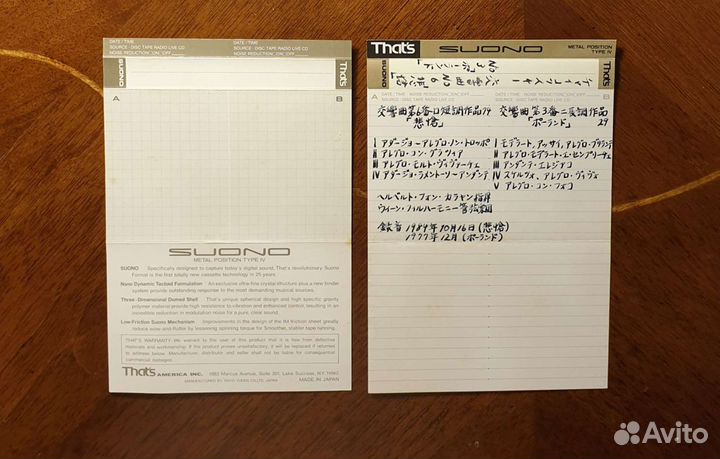 DATE / TIME
SOURCE · DISC TAPE RADIO LIVE CD
NOISE REDUCTION_ON_OFF
DATE / TIME
SOURCE · DISC TAPE RADIO LIVE CD
NOISE REDUCTION_ON_OFF
SUONO
That's
A
B
SUONO
METAL POSITION TYPE IV
SUONO Specifically designed to capture today's digital sound. That's revolutionary Suono
Format is the first totally new cassette technology in 25 years.
Nano Dynamic Tactoid Formulation An exclusive ultra-fine crystal structure plus a new binder
system provide outstanding response to the most demanding musical sources.
Three-Dimensional Domed Shell That's unique spherical design and high specific gravity
polymer material provide high resistance to vibration and enhanced control, resulting in an
incredible reduction in modulation noise for a pure, clear sound.
Low-Friction Suono Mechanism Improvements in the design of the IM friction sheet greatly
reduce wow-and-flutter by lessening spinning torque for Smoother, stabler tape running.
THAT'S WARRANTY: We warrant to the user of this product that it is free from defective
materials and workmanship. If this product proves unsatisfactory, it will be replaced if returned
to address below. Manufacturer, distributor and seller shall not be liable for consequential
commercial damages.
That's AMERICA INC. 1983 Marcus Avenue, Suite 201, Lake Success, N.Y.
MANUFACTURED BY TAIYO YUDEN CO., LTD., Japan MADE IN JAPAN
That's SUONO METAL POSITION TYPE IV
SUONO
チャイコフスキー
交響曲 NO 6 悲愴
NO 3 ポーランド
That's
A
DATE / TIME NOISE REDUCTION_ON_OFF
SOURCE · DISC TAPE RADIO LIVE CD
DATE / TIME NOISE REDUCTION_ON_OFF
SOURCE · DISC TAPE RADIO LIVE CD
B
交響曲第6番ロ短調作品74
「悲愴」
交響曲第3番ニ長調作品
29
「ポーランド」
I アダージョ〜アレグロ・ノン・トロッポ
II アレグロ・コン・グラツィア
III アレグロ・モルト・ヴィヴァーチェ
IV アダージョ・ラメントーソ〜アンダンテ
I モデラート・アッサイ、アレグロ・ブリランテ
II アレグロ・モデラート・エ・センプリーチェ
III アンダンテ・エレジアコ
IV スケルツォ、アレグロ・ヴィヴォ
V アレグロ・コン・フォコ
ヘルベルト・フォン・カラヤン指揮
ウィーン・フィルハーモニー管弦楽団
録音 1984年10月16日(悲愴)
1977年12月(ポーランド)
Avito